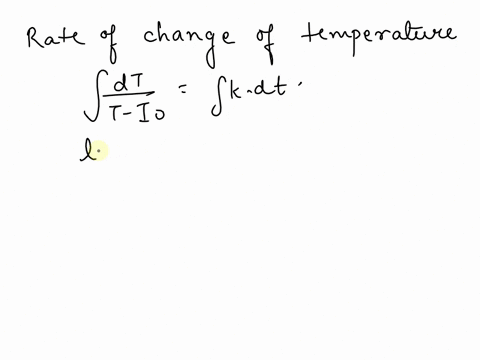 Rate of change of temperature
∫ dT / T - I0 = ∫ k·dt ·
l